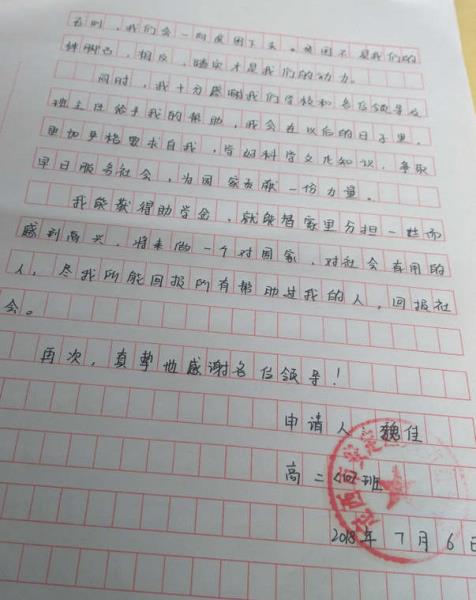 否则，我们会一时贫困下去。贫困不是我们的
绊脚石，相反，踏实才是我们的动力。
同时，我十分感谢我们学校和各位领导及
班主任给予我的帮助，我会在以后的日子里，
更加严格要求自我，学好科学文化知识，争取
早日服务社会，为国家贡献一份力量。
我能获得助学金，就能替家里分担一些而
感到高兴，将来做一个对国家，对社会有用的
人，尽我所能回报所有帮助过我的人，回报社
会。
再次，真挚地感谢各位领导！
申请人 魏佳
高二 班
2018年7月6日